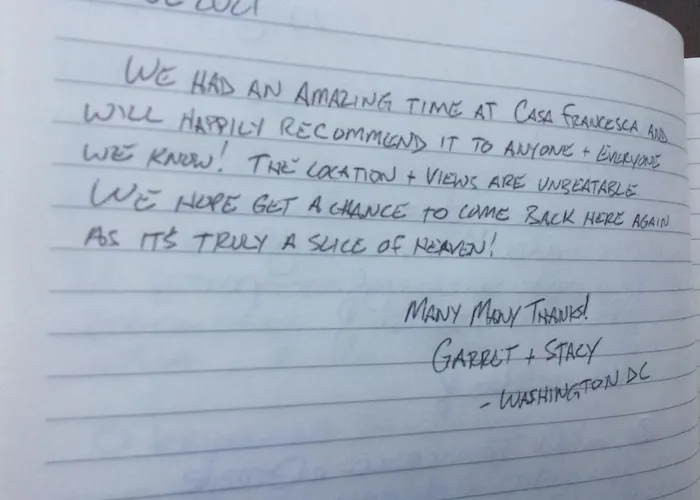 WE HAD AN AMAZING TIME AT CASA FRANCESCA AND
WILL HAPPILY RECOMMEND IT TO ANYONE + EVERYONE
WE KNOW! THE LOCATION + VIEWS ARE UNBEATABLE
WE HOPE GET A CHANCE TO COME BACK HERE AGAIN
AS IT'S TRULY A SLICE OF HEAVEN!
MANY MANY THANKS!
GARRET + STACY
- WASHINGTON DC